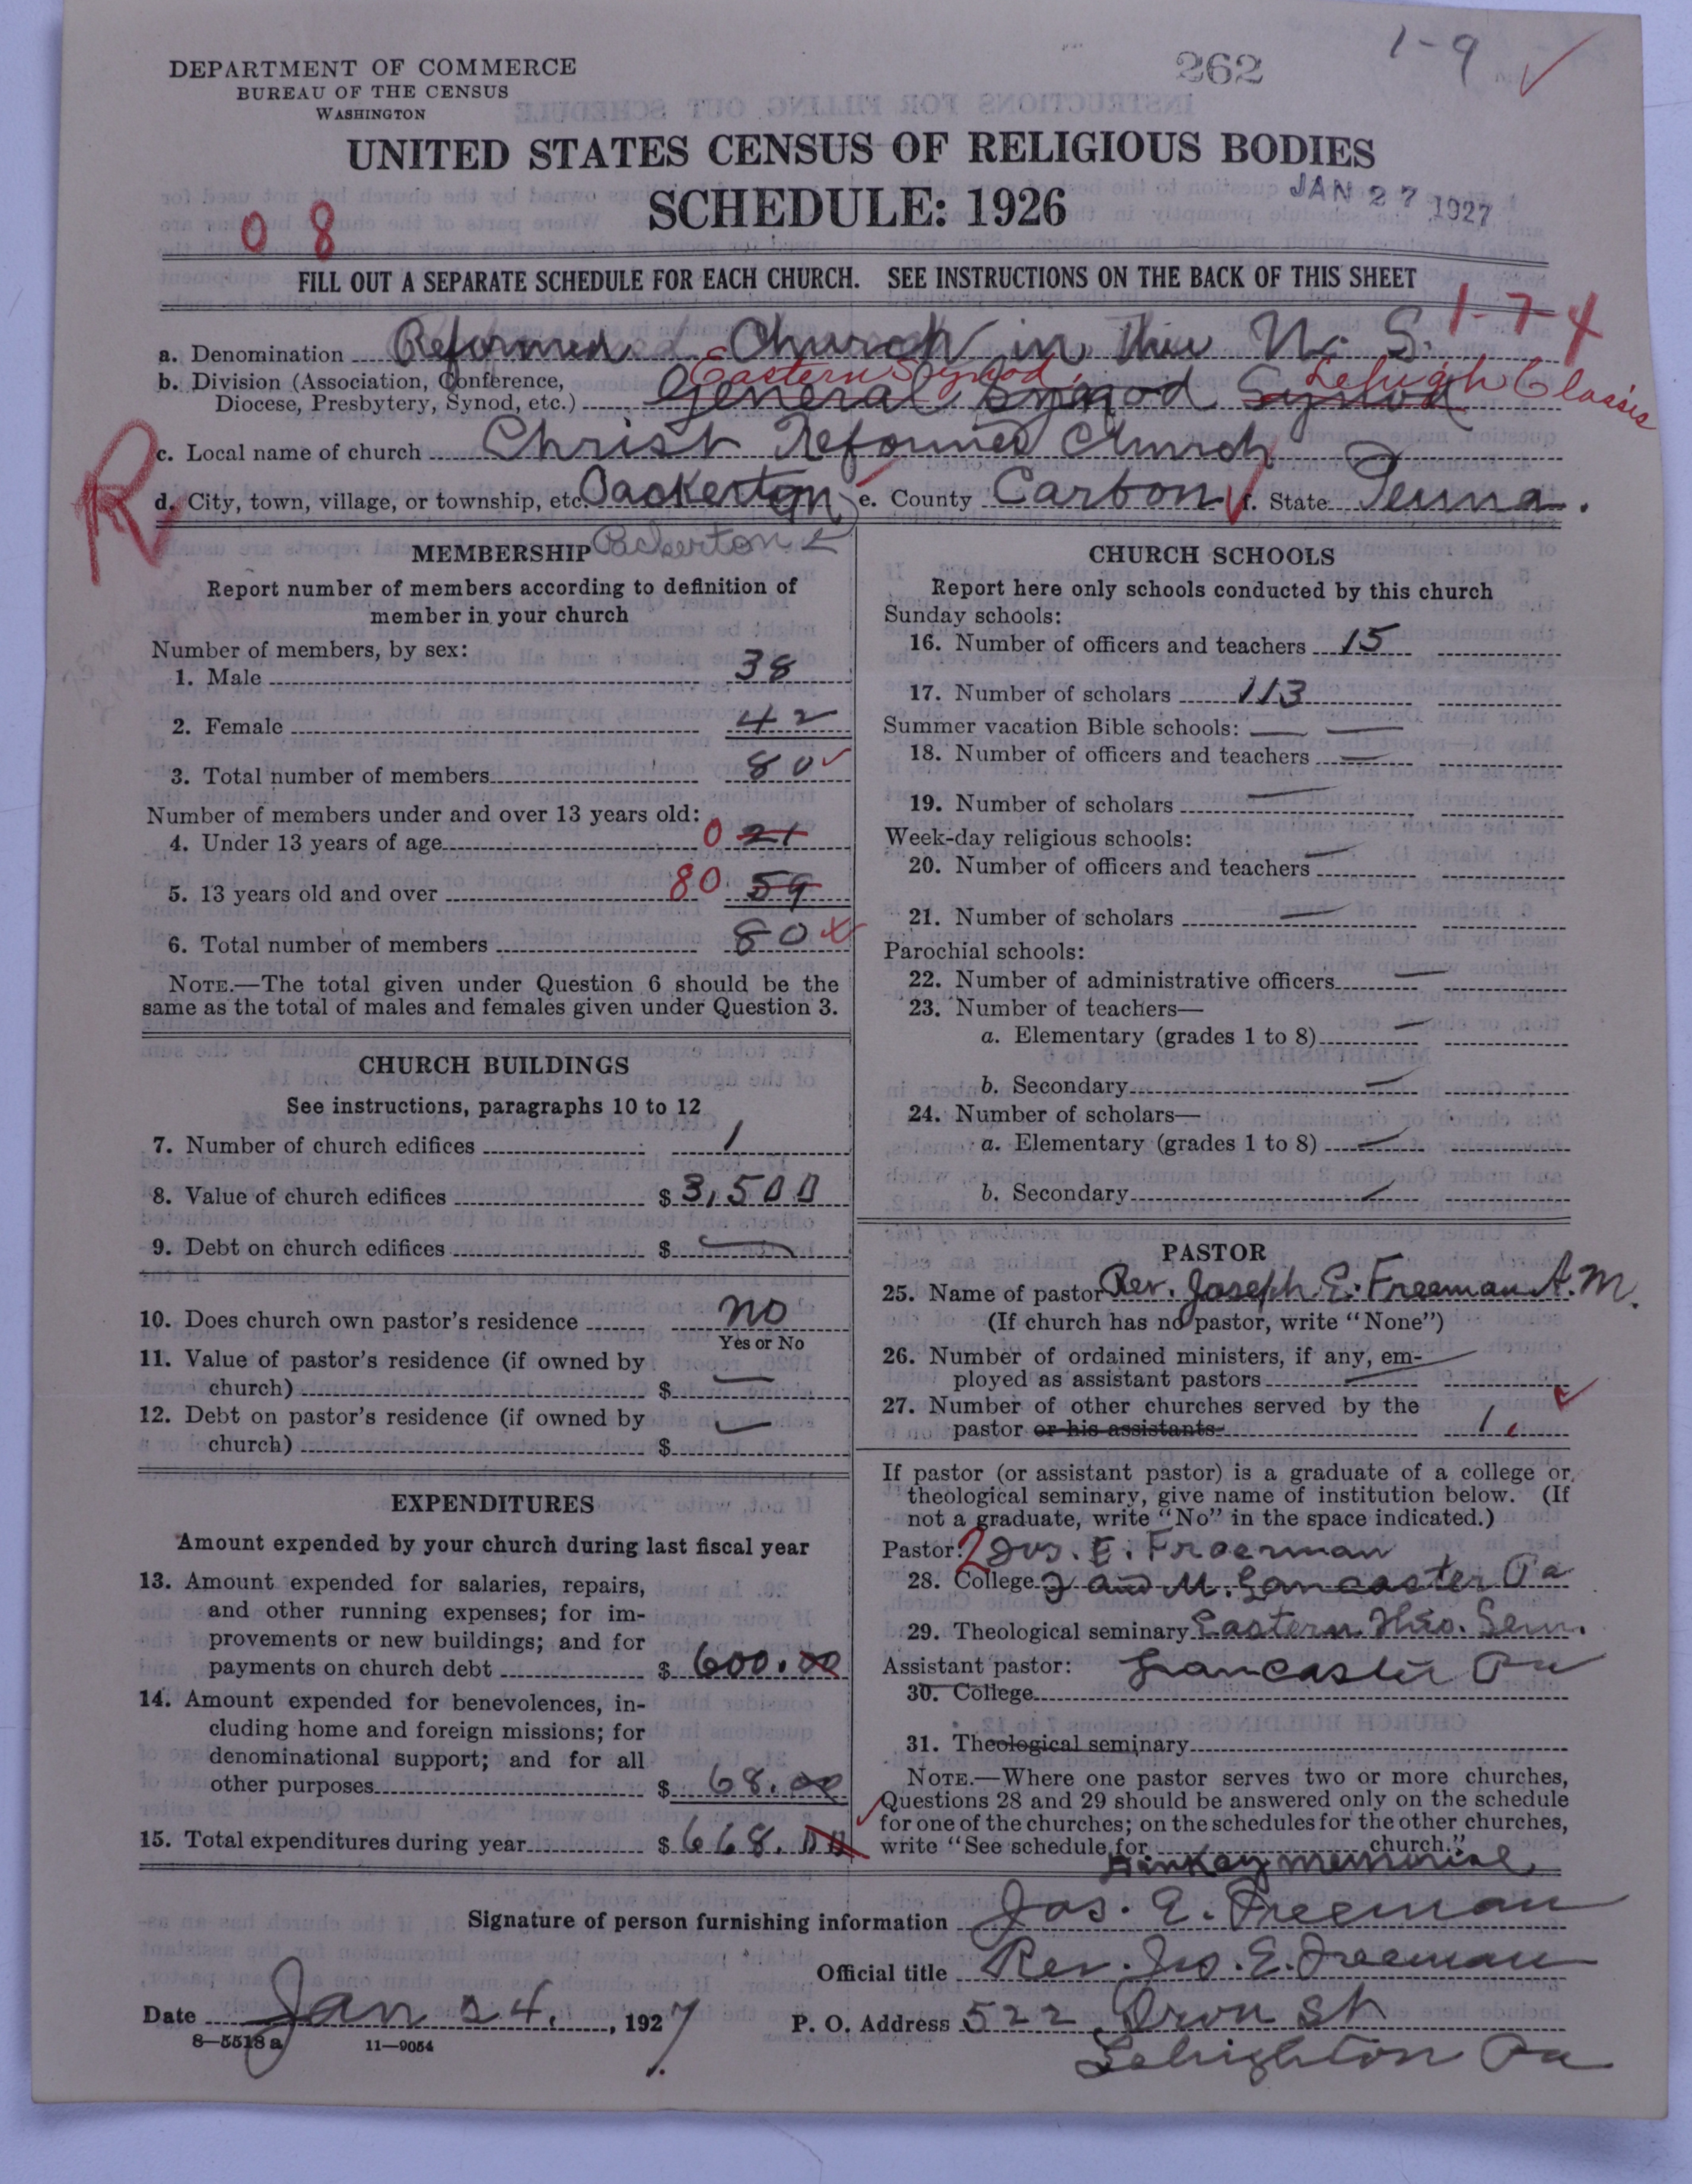 262
1-9
DEPARTMENT OF COMMERCE
BUREAU OF THE CENSUS
WASHINGTON
UNITED STATES CENSUS OF RELIGIOUS BODIES
SCHEDULE: 1926
JAN 27 1927
0 8
FILL OUT A SEPARATE SCHEDULE FOR EACH CHURCH. SEE INSTRUCTIONS ON THE BACK OF THIS SHEET
1-7-4
a. Denomination Reformed Church in the U. S.
Eastern Synod, Lehigh Classis
b. Division (Association, Conference,
Diocese, Presbytery, Synod, etc.) General Synod Synod
R
c. Local name of church Christ Reformed Church
d. City, town, village, or township, etc. Packerton e. County Carbon f. State Penna.
Packerton
MEMBERSHIP
Report number of members according to definition of
member in your church
Number of members, by sex:
1. Male 38
2. Female 42
3. Total number of members 80
Number of members under and over 13 years old:
4. Under 13 years of age 0 21
5. 13 years old and over 80 59
6. Total number of members 80
NOTE.—The total given under Question 6 should be the
same as the total of males and females given under Question 3.
CHURCH BUILDINGS
See instructions, paragraphs 10 to 12
7. Number of church edifices 1
8. Value of church edifices $ 3,500
9. Debt on church edifices $ —
10. Does church own pastor's residence no
Yes or No
11. Value of pastor's residence (if owned by
church) $ —
12. Debt on pastor's residence (if owned by
church) $ —
EXPENDITURES
Amount expended by your church during last fiscal year
13. Amount expended for salaries, repairs,
and other running expenses; for im-
provements or new buildings; and for
payments on church debt $ 600.00
14. Amount expended for benevolences, in-
cluding home and foreign missions; for
denominational support; and for all
other purposes $ 68.00
15. Total expenditures during year $ 668.00
CHURCH SCHOOLS
Report here only schools conducted by this church
Sunday schools:
16. Number of officers and teachers 15
17. Number of scholars 113
Summer vacation Bible schools: — —
18. Number of officers and teachers —
19. Number of scholars —
Week-day religious schools:
20. Number of officers and teachers —
21. Number of scholars —
Parochial schools:
22. Number of administrative officers —
23. Number of teachers—
a. Elementary (grades 1 to 8) —
b. Secondary —
24. Number of scholars—
a. Elementary (grades 1 to 8) —
b. Secondary —
PASTOR
25. Name of pastor Rev. Joseph E. Freeman A. M.
(If church has no pastor, write "None")
26. Number of ordained ministers, if any, em-
ployed as assistant pastors —
27. Number of other churches served by the
pastor or his assistants 1
If pastor (or assistant pastor) is a graduate of a college or
theological seminary, give name of institution below. (If
not a graduate, write "No" in the space indicated.)
Pastor: 2 Jos. E. Freeman
28. College F and M. Lancaster Pa
29. Theological seminary Eastern Theo. Sem.
Assistant pastor: Lancaster Pa
30. College
31. Theological seminary
NOTE.—Where one pastor serves two or more churches,
Questions 28 and 29 should be answered only on the schedule
for one of the churches; on the schedules for the other churches,
write "See schedule for church."
Memorial
Signature of person furnishing information Jos. E. Freeman
Official title Rev. Jos. E. Freeman
Date Jan 24, 1927
P. O. Address 522 Iron St
Lehighton Pa
8—5518 a 11—9054